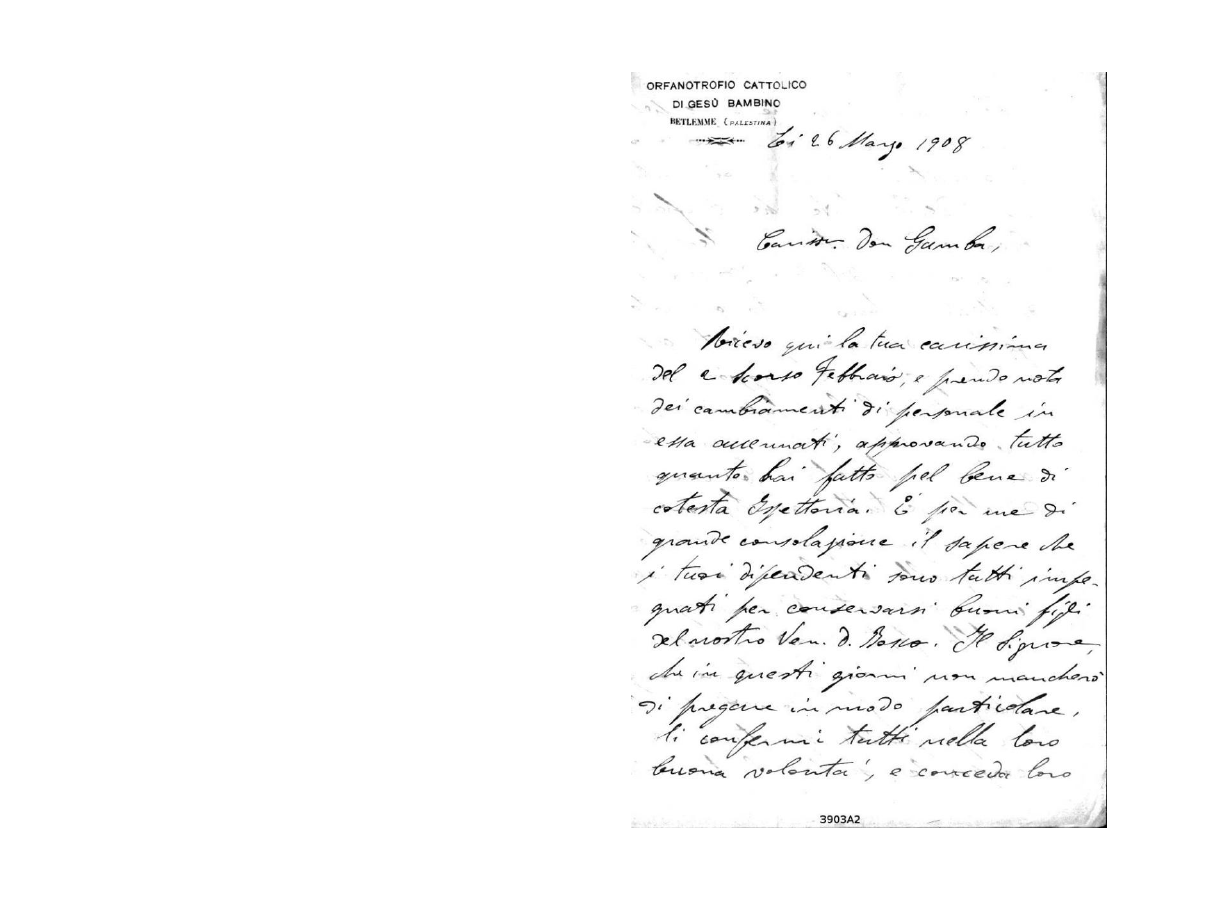 ORFANOTROFIO CATTOLICO
DI GESÙ BAMBINO
BETLEMME (PALESTINA)
Li 26 Marzo 1908
Cariss. Don Gamba,
Ricevo qui la tua carissima
del 2 scorso Febbraio, e prendo nota
dei cambiamenti di personale in
essa accennati, approvando tutto
quanto hai fatto pel bene di
cotesta Ispettoria. È per me di
grande consolazione il sapere che
i tuoi dipendenti sono tutti impe-
gnati per conservarsi buoni figli
del nostro Ven. D. Bosco. Il Signore,
che in questi giorni non mancherò
di pregare in modo particolare,
li confermi tutti nella loro
buona volontà, e conceda loro
3903A2